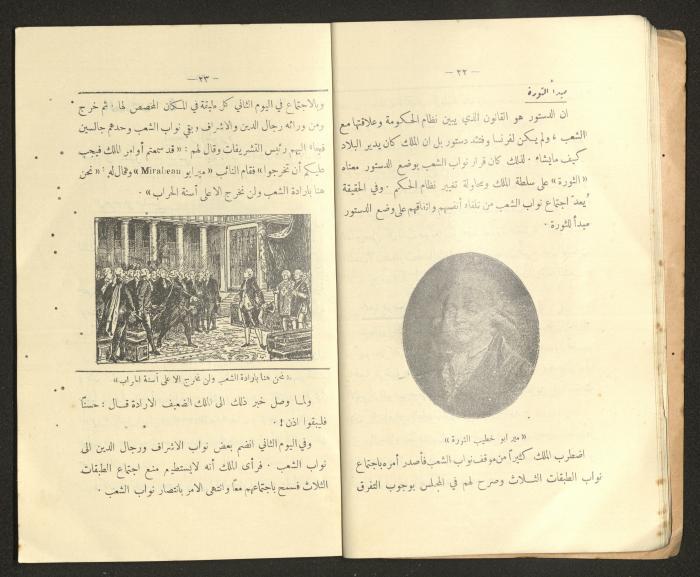 — ٢٢ —
مبدأ الثورة
ان الدستور هو القانون الذي يبين نظام الحكومة وعلاقتها مع
الشعب ، ولم يكن لفرنسا وقتئذ دستور بل ان الملك كان يدير البلاد
كيف مايشاء . لذلك كان قرار نواب الشعب بوضع الدستور معناه
« الثورة » على سلطة الملك ومحاولة تغيير نظام الحكم . وفي الحقيقة
يُعدّ اجتماع نواب الشعب من تلقاء أنفسهم واتفاقهم على وضع الدستور
مبدأ للثورة .
« ميرابو خطيب الثورة »
اضطرب الملك كثيراً من موقف نواب الشعب فأصدر أمره باجتماع
نواب الطبقات الثلاث وصرح لهم في المجلس بوجوب التفرق
— ٢٣ —
وبالاجتماع في اليوم الثاني كل طبقة في المكان المخصص لها ! ثم خرج
ومن ورائه رجال الدين والاشراف وبقي نواب الشعب وحدهم جالسين
فجاء اليهم رئيس التشريفات وقال لهم : « قد سمعتم أوامر الملك فيجب
عليكم أن تخرجوا » فقام النائب « ميرابو Mirabeau » وقال له : « نحن
هنا بارادة الشعب ولن نخرج الا على أسنة الحراب » .
« نحن هنا بارادة الشعب ولن نخرج الا على أسنة الحراب »
ولما وصل خبر ذلك الى الملك الضعيف الارادة قال : حسناً
فليبقوا اذن ! .
وفي اليوم الثاني انضم بعض نواب الاشراف ورجال الدين الى
نواب الشعب . فرأى الملك أنه لايستطيع منع اجتماع الطبقات
الثلاث فسمح باجتماعهم معاً وانتهى الامر بانتصار نواب الشعب .